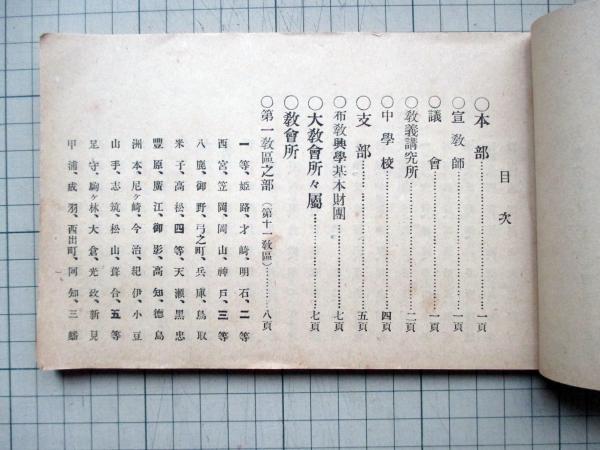 目次
○本部…………一頁
○宣教師…………一頁
○議會…………一頁
○敎義講究所…………二頁
○中學校…………四頁
○支部…………五頁
○布敎興學基本財團…………七頁
○大敎會所々屬…………七頁
○敎會所
○第一敎區之部(第十一敎區)…………八頁
一等、姫路、才崎、明石、二等
西宮、笠岡、岡山、神戸、三等
八鹿、御野、弓之町、兵庫、鳥取
米子、高松、四等、天瀬、黒忠
豐原、廣江、御影、高知、德島
洲本、尼ヶ崎、今治、紀伊、小豆
山手、志筑、松山、葺合、五等
足守、駒ヶ林、大倉、光政、新見
甲浦、成羽、西出町、阿知、三蟠